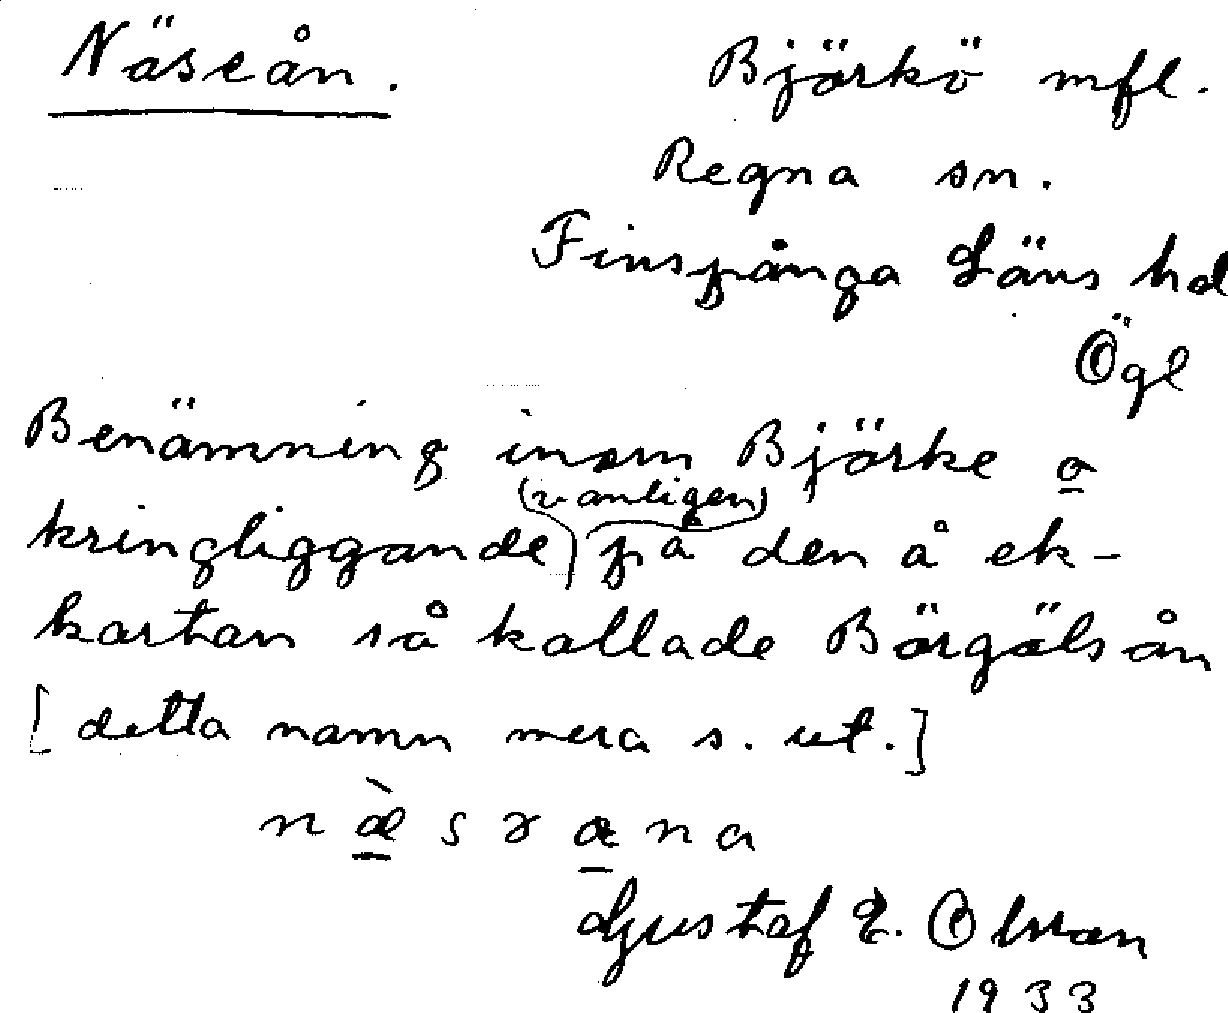 Näseån.
Björkö mfl.
Regna sn.
Finspånga Läns hd
Ögl
Benämning inom Björke o
(vanligen)
kringliggande på den å ek-
kartan så kallade Börgölsån
[detta namn mera s. ut.]
Gustaf E. Olsson
1933